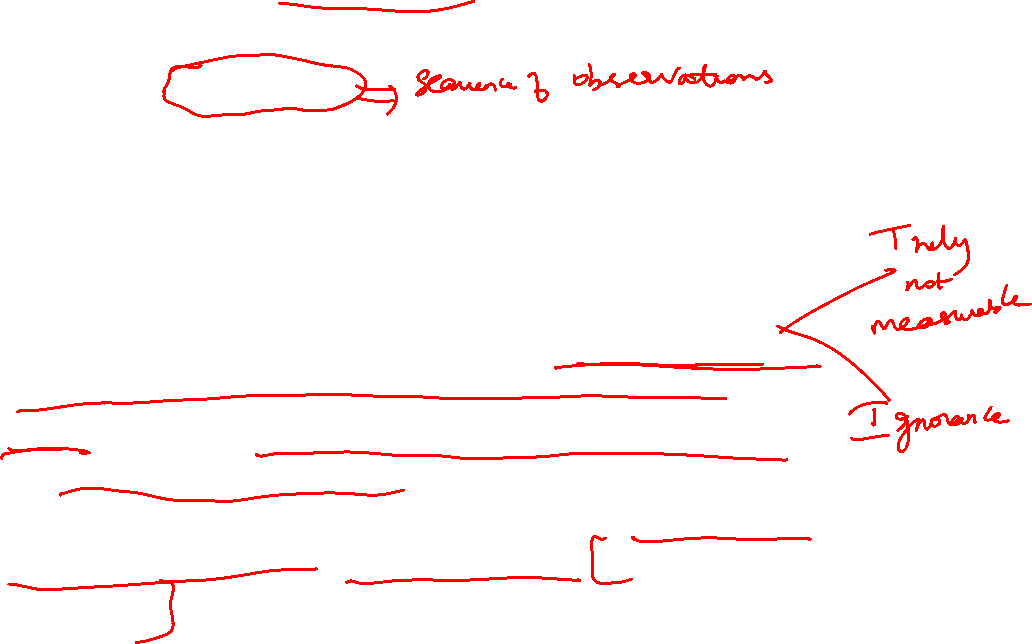 Sequence of observations
Truly
not
measurable
Ignorance